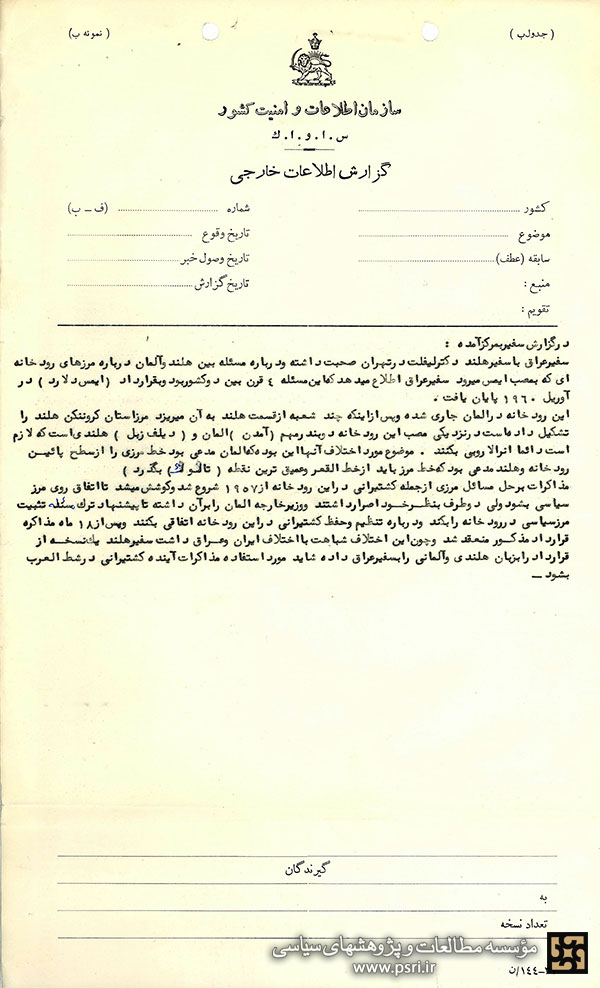 ( جدول ب )
( نمونه ب )
سازمان اطلاعات و امنیت کشور
س . ا . و . ا . ک
گزارش اطلاعات خارجی
کشور ........ شماره ........ (ف - ب)
موضوع ........ تاریخ وقوع ........
سابقه (عطف) ........ تاریخ وصول خبر ........
منبع : تاریخ گزارش ........
تقویم :
در گزارش سفیر بمرکز آمده :
سفیر عراق با سفیر هلند دکتر لیفلت در تهران صحبت داشته و درباره مسئله بین هلند و آلمان درباره مرزهای رودخانه
ای که بمصب ایمس میرود سفیر عراق اطلاع میدهد که این مسئله ٤ قرن بین دو کشور بود و بقرارداد ( ایمس دلارد ) در
آوریل ١٩٦٠ پایان یافت .
این رودخانه در المان جاری شده و پس از اینکه چند شعبه از قسمت هلند به آن میریزد مرز استان کروننکن هلند را
تشکیل داده است در نزدیکی مصب این رودخانه دو بندر مهم ( آمدن ) المان و ( دیلف زیل ) هلندی است که لازم
است دائما انرا لاروبی بکنند . موضوع مورد اختلاف آنها این بوده که المان مدعی بود خط مرزی را از سطح پائین
رودخانه و هلند مدعی بود که خط مرز باید از خط القعر و عمیق ترین نقطه ( تالوگ ) بگذرد )
مذاکرات برحل مسائل مرزی از جمله کشتیرانی در این رودخانه از ١٩٥٧ شروع شد و کوشش میشد تا اتفاق روی مرز
سیاسی بشود ولی دو طرف بنظر خود اصرار داشتند و وزیر خارجه المان را برآن داشته تا پیشنهاد ترک مسئله تثبیت
مرز سیاسی در رودخانه را بکند و درباره تنظیم و حفظ کشتیرانی در این رودخانه اتفاقی بکنند و پس از ١٨ ماه مذاکره
قرارداد مذکور منعقد شد و چون این اختلاف شباهت با اختلاف ایران و عراق داشت سفیر هلند یک نسخه از
قرارداد را بزبان هلندی و آلمانی را بسفیر عراق داده شاید مورد استفاده مذاکرات آینده کشتیرانی در شط العرب
بشود ــ
گیرندگان
به
تعداد نسخه
مؤسسه مطالعات و پژوهشهای سیاسی
www.psri.ir